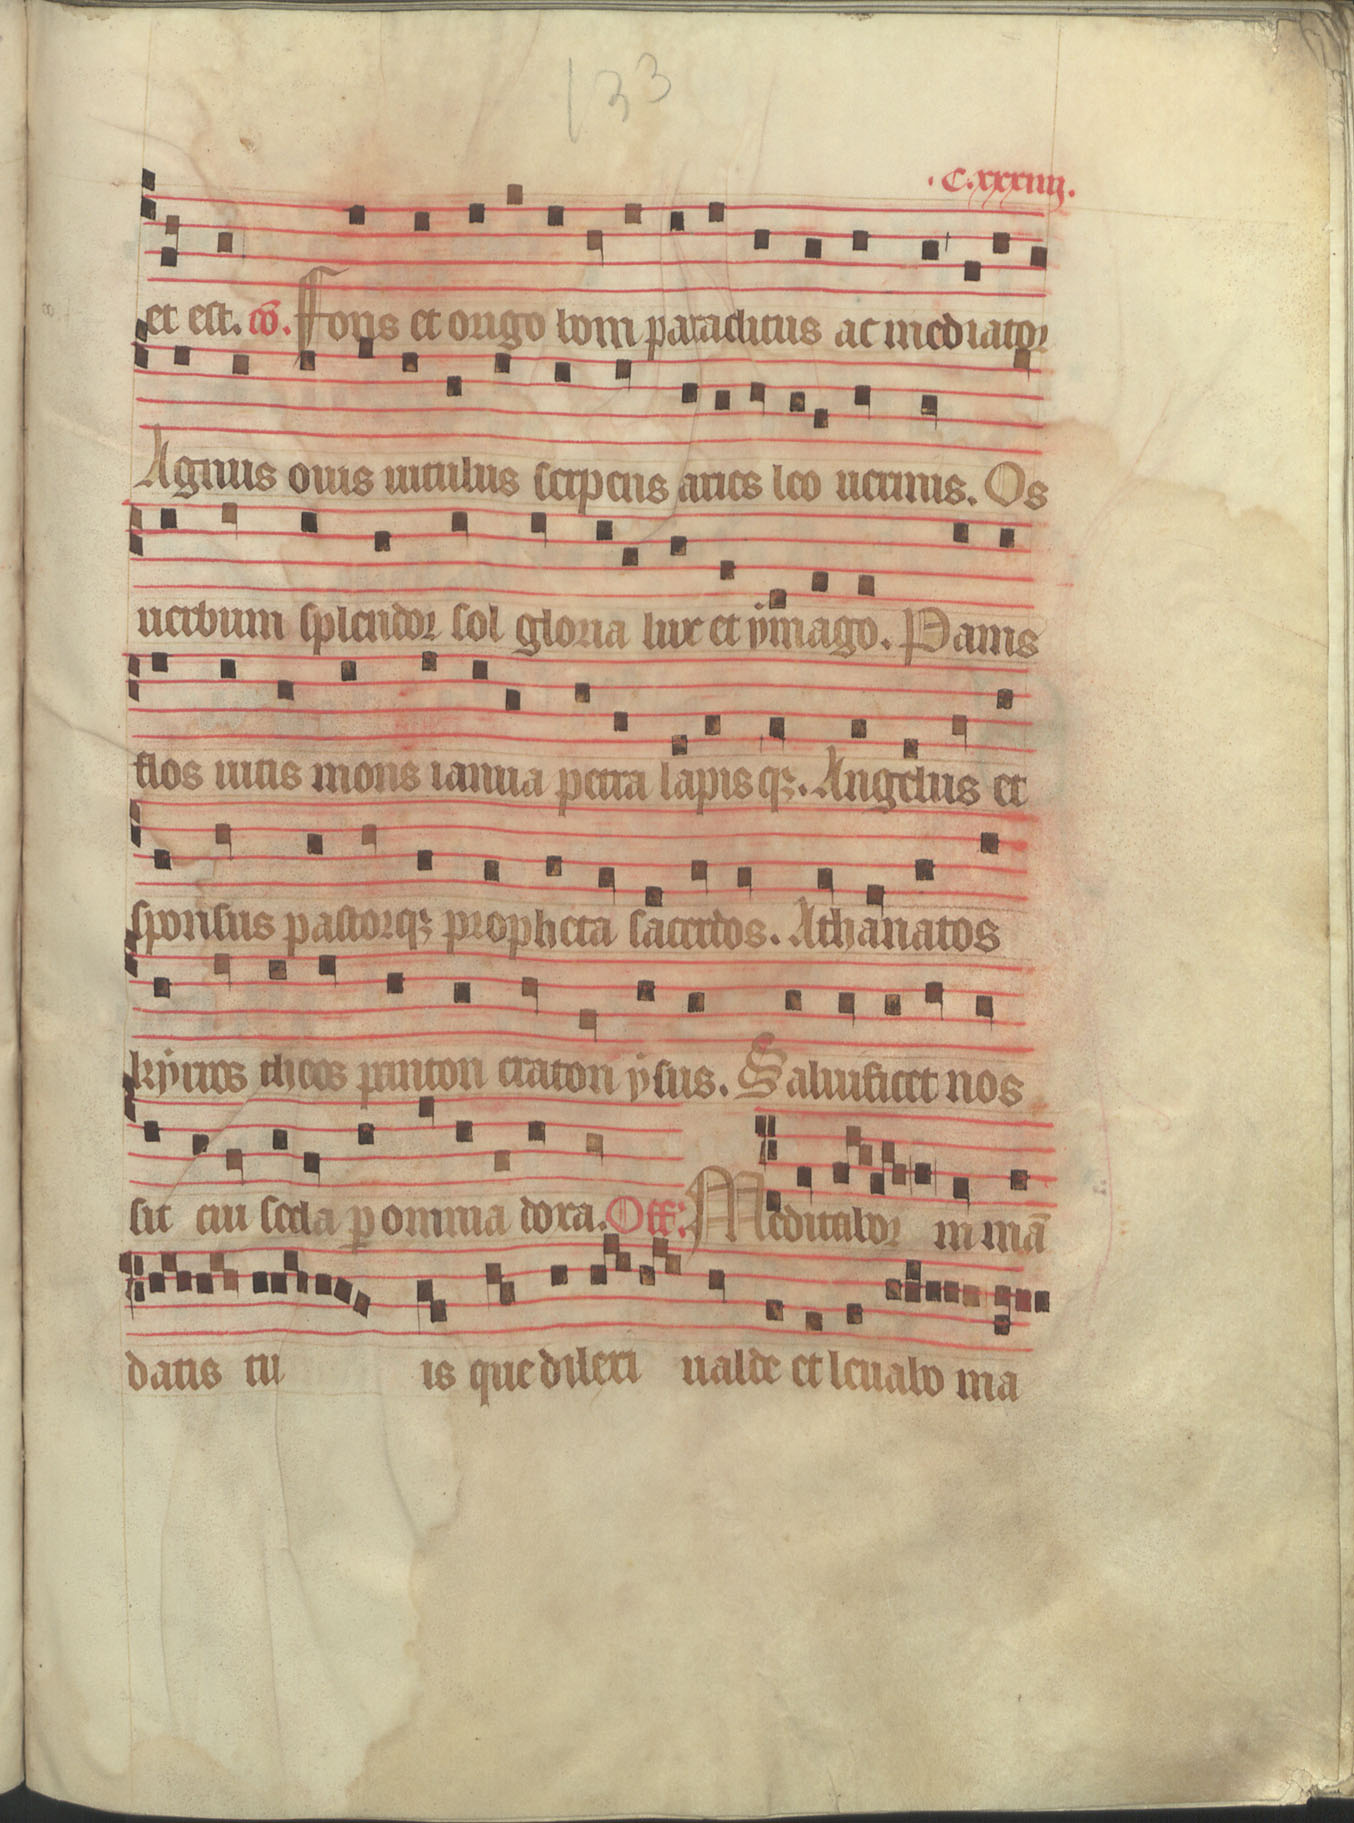 133
.C.xxxiiij.
et est. cō. Fons et origo boni paraclitus ac mediator
Agnus ouis uitulus serpens aries leo uermis. Os
uerbum splendor sol gloria lux et ÿmago. Panis
flos uitis mons ianua petra lapis qꝫ. Angelus et
sponsus pastorqꝫ propheta sacerdos. Athanatos
kÿrros theos panton craton ÿsus. Saluificet nos
sit cui secla ꝑ omnia doxa. Off. Meditabor in mā
datis tu is que dilexi ualde et leuabo ma